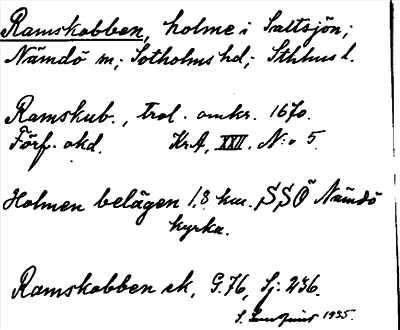 Ramskobben, holme i Saltsjön;
Nämdö sn; Sotholms hd; Sthlms l.
Ramskub., trol. omkr. 1670.
Förf. okd. KrA, XXII. N:o 5.
Holmen belägen 1.8 km. SSÖ Nämdö
kyrka.
Ramskobben ek, G.76, Sj. 236.
1935.